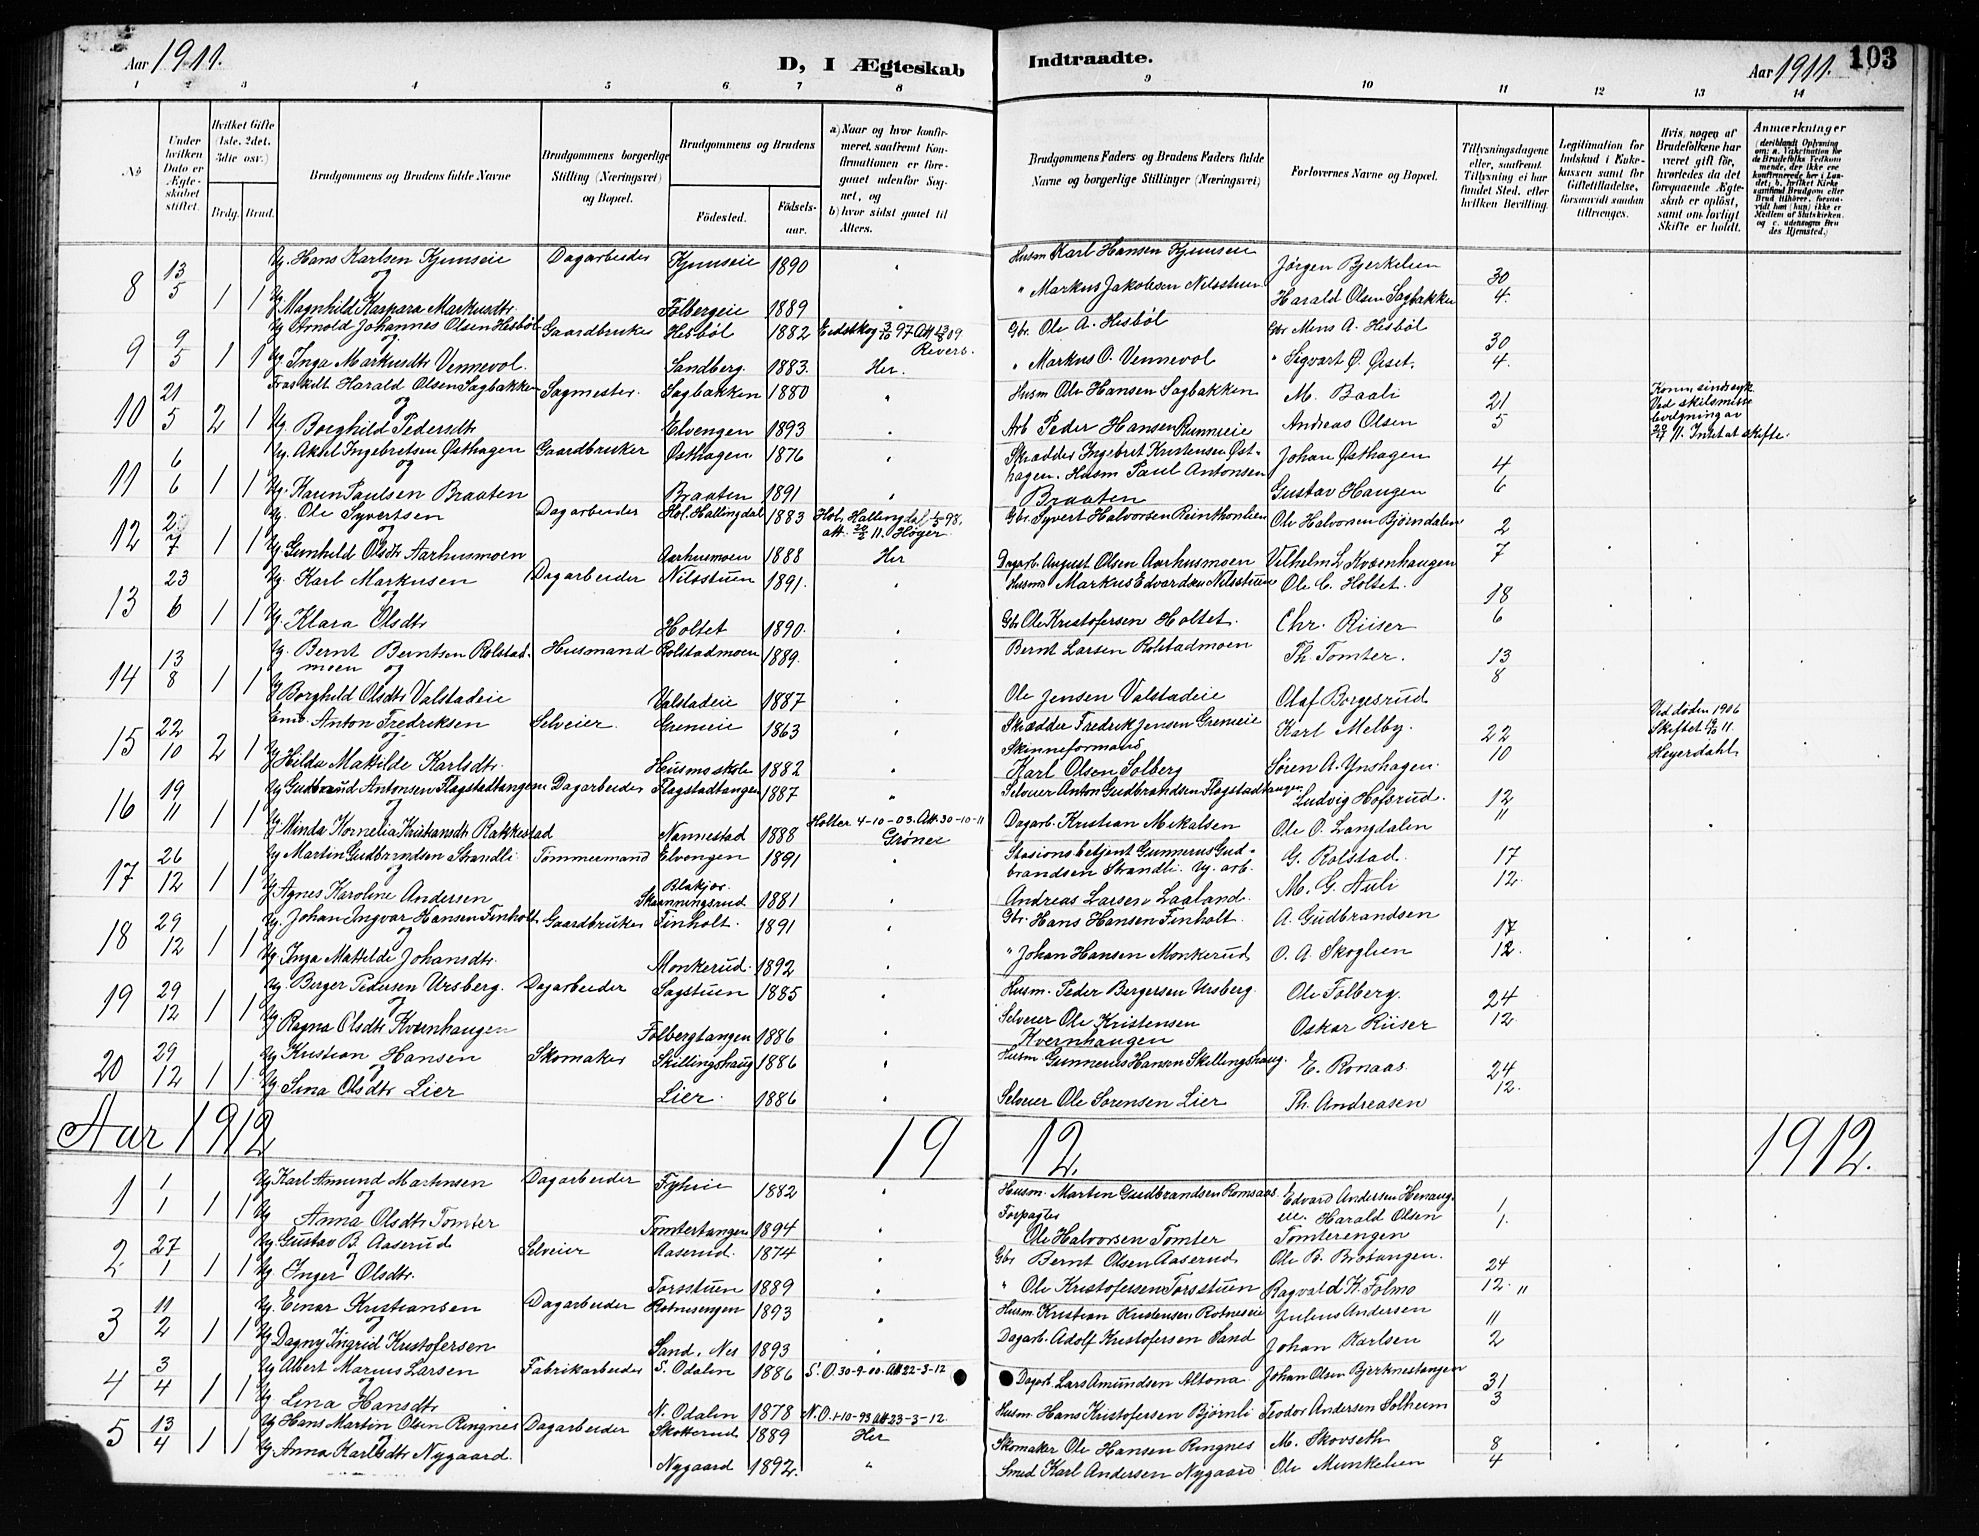 Aar 1911. D, I Ægteskab Indtraadte. Aar 1911. 103
1 2 3 4 5 6 7 8 9 10 11 12 13 14
No
Under hvilken Dato er Ægteskabet stiftet.
Hvilket Gifte (1ste, 2det, 3die osv.)
Brdg. Brud.
Brudgommens og Brudens fulde Navne
Brudgommens borgerlige Stilling (Næringsvei) og Bopæl.
Brudgommens og Brudens
Fødested. Fødselsaar.
a) Naar og hvor konfirmeret, saafremt Konfirmationen er foregaaet udenfor Sognet, og
b) hvor sidst gaaet til Alters.
Brudgommens Faders og Brudens Faders fulde Navne og borgerlige Stillinger (Næringsvei)
Forlovernes Navne og Bopæl.
Tillysningsdagene eller, saafremt Tillysning ei har fundet Sted, efter hvilken Bevilling.
Legitimation for Indskud i Enkekassen samt for Giftetilladelse, forsaavidt saadan tiltrænges.
Hvis nogen af Brudefolkene har været gift før, hvorledes da det foregaaende Ægteskab er opløst, samt om lovligt Skifte er holdt.
Anmærkninger
8 13/5 1 1 Ug. Hans Karlsen Kjunseie Dagarbeider Kjunseie 1890 " Husm Karl Hansen Kjunseie Jørgen Bjerkelien 30/4.
og
Ug. Magnhild Kaspara Markusdtr. Folbergeie 1889 " " Markus Jakobsen Nilsstuen Harald Olsen Sagbakken
9 9/5 1 1 Ug Arnold Johannes Olsen Hesbøl Gaardbruker Hesbøl 1882 Eidskog Gbr. Ole A. Hesbøl Gbr Mens A. Hesbøl 30/4.
og
Ug. Inga Markusdtr Vennevol. Sandberg. 1883. Her. " Markus O. Vennevol " Segvart Ø. Øiset.
10 21/5 2 1 Fraskilt Harald Olsen Sagbakken Sagmester. Sagbakken 1880 " Husm Ole Hansen Sagbakken M. Baali 21/5 Konen sindssyk. Ved skilsmisse bevilgning av 11. Intet at skifte.
og
Ug. Borghild Pedersdtr Elvengen 1893 Arb Peder Hansen Andreas Olsen
11 6/6 1 1 Ug. Aksel Ingebretsen Østhagen Gaardbruker Østhagen 1876 " Skrædder Ingebret Kristensen Øst- Johan Østhagen 4/6
og hagen. Husm Paul Antonsen
Ug. Karen Paulsen Braaten Braaten 1891 " Braaten Gustav Haugen
12 1 1 Ug. Ole Syvertsen Dagarbeider Hol. Hallingdal 1883 Hol, Hallingdal 98. Gbr. Syvert Halvorsen Ole Halvorsen Bjørndalen 2/7
og att. 11. Høyer
Ug. Gunhild Olsdtr Aarhusmoen Aarhusmoen 1888 Her Dagarb. August Olsen Aarhusmoen Vilhelm L Kvænhaugen
13 23/6 1 1 Ug. Karl Markusen Dagarbeider Nilsstuen 1891. " Husm Markus Edvardsen Nilsstuen Ole C. Holtet. 18/6
og
Ug. Klara Olsdtr Holtet 1890. " Gbr Ole Kristofersen Holtet. Chr. Riiser
14 13/8 1 1 Ug. Bernt Berntsen Rolstad- Husmand Rolstadmoen 1889. " Bernt Larsen Rolstadmoen Th. Tomter. 13/8
moen og
Ug Borghild Olsdtr Valstadeie Valstadeie 1887 " Ole Jensen Valstadeie Olaf Borgesrud
15 22/10 2 1 Emd. Anton Fredriksen Selveier. Gremeie 1863 " Skrædder Fredrik Jensen Gremeie Karl Melby. 22/10 Ved døden 1906 Skiftet 11. Heyerdahl
og Skinneformand
Ug Hilda Matilde Karlsdtr. Husmoskole 1882 " Karl Olsen Solberg Søren A. Ynshagen.
16 19/11 1 1 Ug Gudbrand Antonsen Flagstadtangen Dagarbeider Flagstadtangen 1887 " Selveier Anton Gudbrandsen Flagstadtangen Ludvig Hofsrud. 12/11
og
Ug. Minda Kornelia Kristiansdtr Rakkestad Nannestad 1888 Holter 4-10-03. Att. 30-10-11 Grøner Dagarb. Kristian Mikalsen Ole O. Langdalen
17 26/12 1 1 Ug Martin Gudbrandsen Strandli Tømmermand Elvengen 1891 Stasionsbetjent Gunnerus Gud- G. Rolstad. 17/12.
og brandsen Strandli. Ug. arb.
Ug Agnes Karoline Andersen Blakjer. 1881 Andreas Larsen Laaland. M. G. Auli
18 29/12 1 1 Ug. Johan Ingvar Hansen Finholt Gaardbruker Finholt. 1891 " Gbr. Hans Hansen Finholt. A. Gudbrandsen 17/12.
og
Ug. Inga Matilde Johansdtr. Monkerud. 1892 " " Johan Hansen Monkerud O. A. Skoglien
19 29/12 1 1 Ug. Berger Pedersen Ursberg. Dagarbeider Sagstuen 1885 " Husm. Peder Bergersen Ursberg. Ole Folberg. 24/12
og
Ug. Ragna Olsdtr Kværnhaugen Folbergtangen 1886 " Selveier Ole Kristensen Kvernhaugen Oskar Riiser
20 29/12 1 1 Ug Kristian Hansen Skomaker Skillingshaug 1886 " Husm Gunnerius Hansen Skillingshaug. E. Ronaas 24/12.
og
Ug Lina Olsdtr Lier Lier 1886 " Selveier Ole Sørensen Lier Th. Andreasen
Aar 1912 1912. 1912.
1 1/1 1 1 Ug Karl Amund Martinsen Dagarbeider 1882 " Husm. Martin Gudbrandsen Romsaas Edvard Andersen Henaug- 1/1.
og Forpagter eie. Harald Olsen
Ug Anna Olsdtr Tomter Tomtertangen 1894 " Ole Halvorsen Tomter Tomterengen
2 27/1 1 1 Ug. Gustav B. Aaserud Selveier Aaserud. 1874 " Gbr Bernt Olsen Aaserud Ole B. Brotangen. 24/12. 11
og
Ug Inger Olsdtr. Torsstuen 1889 " " Ole Kristofersen Torsstuen Ragvald K. Folmo
3 11/2 1 1 Ug. Einar Kristiansen Dagarbeider Rotnesengen 1893 " Husm. Kristian Kristensen Rotneseie Julius Andersen 11/2
og
Ug Dagny Ingrid Kristofersen Sand, Nes 1893 " Dagarb. Adolf Kristofersen Sand Johan Karlsen
4 3/4 1 1 Ug Albert Marius Larsen Fabrikarbeider S. Odalen 1886 S. O. 30-9-00. Att 22-3-12 Dagarb. Lars Amundsen Altona. Johan Olsen Bjerknestangen 31/3
og
Ug Lina Hansdtr N. Odalen 1878 N. O. 1-10-93 Att 23-3-12. Husm. Hans Kristofersen Bjørnli Teodor Andersen Solheim
5 13/4 1 1 Ug Hans Martin Olsen Ringnes Dagarbeider Skotterud 1889 Her Skomaker Ole Hansen Ringnes M. Skovseth 8/4
og
Ug Anna Karlsdtr Nygaard. Nygaard 1892. " Smed Karl Andersen Nygaard Ole Munkelien